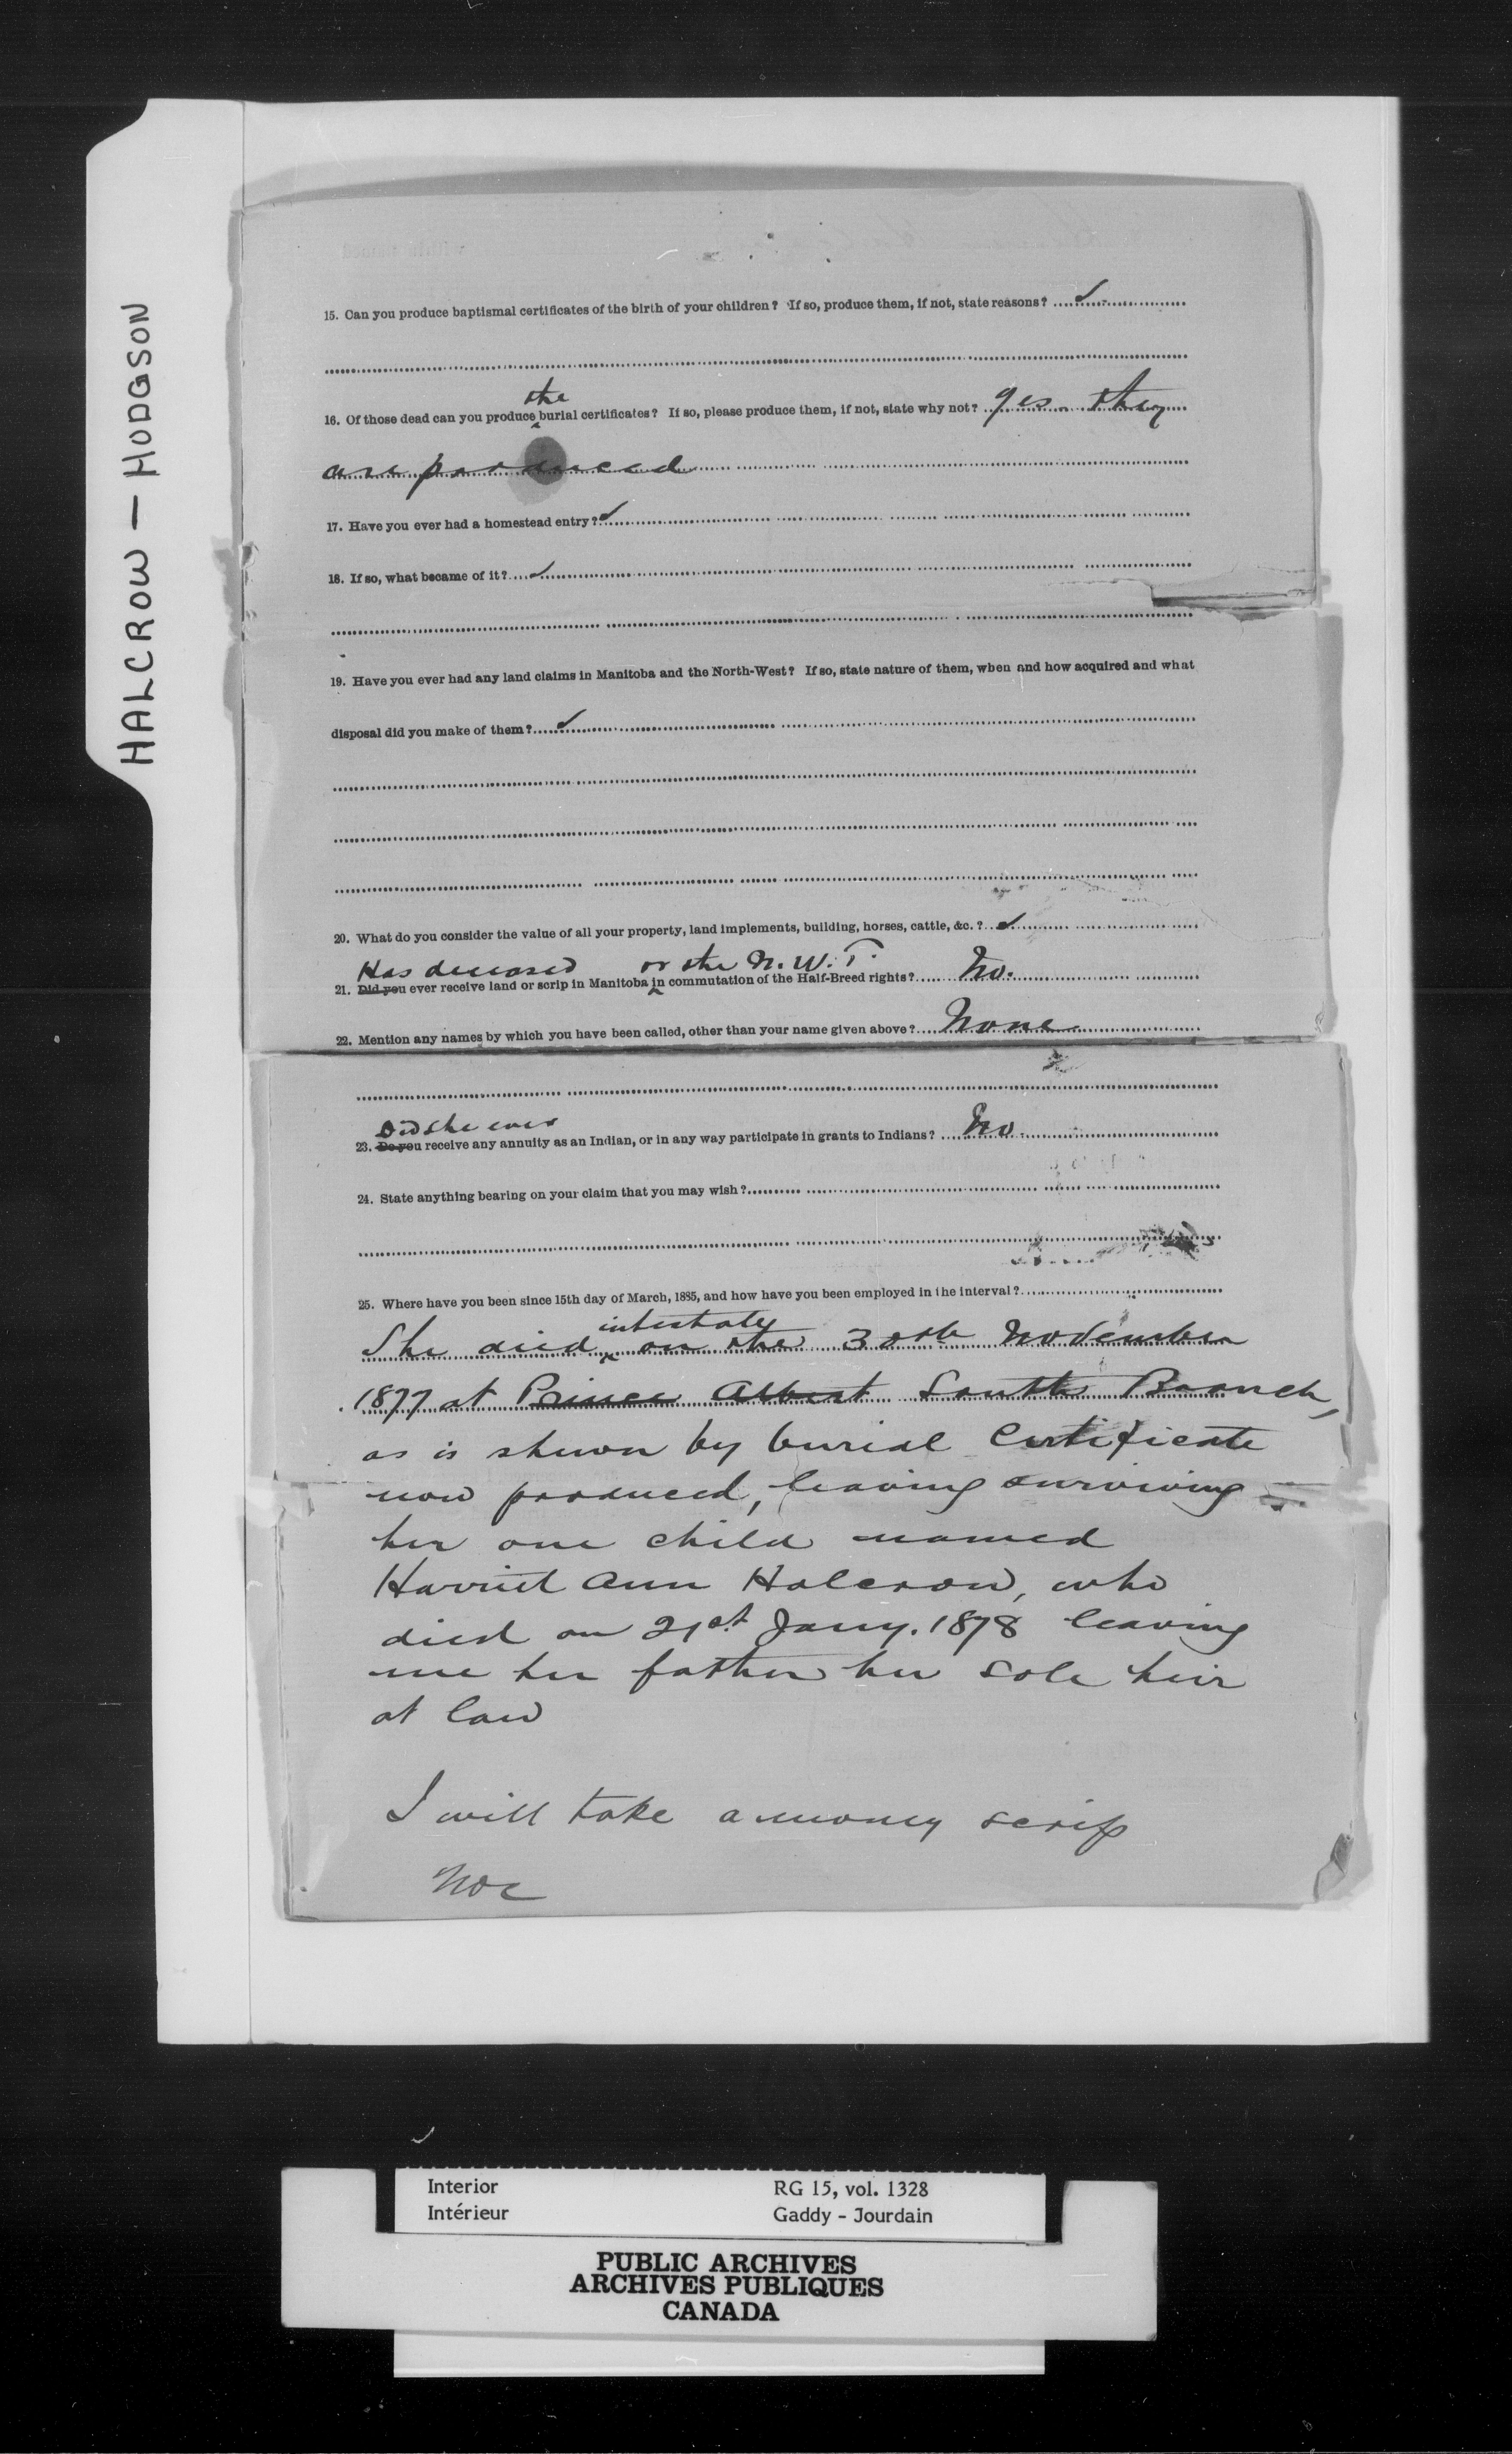 HALCROW — HODGSON
15. Can you produce baptismal certificates of the birth of your children? If so, produce them, if not, state reasons?
the
16. Of those dead can you produce burial certificates? If so, please produce them, if not, state why not? yes they
are produced
17. Have you ever had a homestead entry?
18. If so, what became of it?
19. Have you ever had any land claims in Manitoba and the North-West? If so, state nature of them, when and how acquired and what
disposal did you make of them?
20. What do you consider the value of all your property, land implements, building, horses, cattle, &c.?
Has deceased or the N. W. T.
21. Did you ever receive land or scrip in Manitoba in commutation of the Half-Breed rights? No.
22. Mention any names by which you have been called, other than your name given above? None
Did she ever
23. Do you receive any annuity as an Indian, or in any way participate in grants to Indians? No
24. State anything bearing on your claim that you may wish?
25. Where have you been since 15th day of March, 1885, and how have you been employed in the interval?
intestate
She died on the 30th November
1877 at Prince Albert South Branch,
as is shewn by burial Certificate
now produced, leaving surviving
her one child named
Harriet Ann Halcrow, who
died on 21st Jany. 1878 leaving
me her father her sole heir
at law
I will take a money scrip
Interior RG 15, vol. 1328
Intérieur Gaddy - Jourdain
PUBLIC ARCHIVES
ARCHIVES PUBLIQUES
CANADA